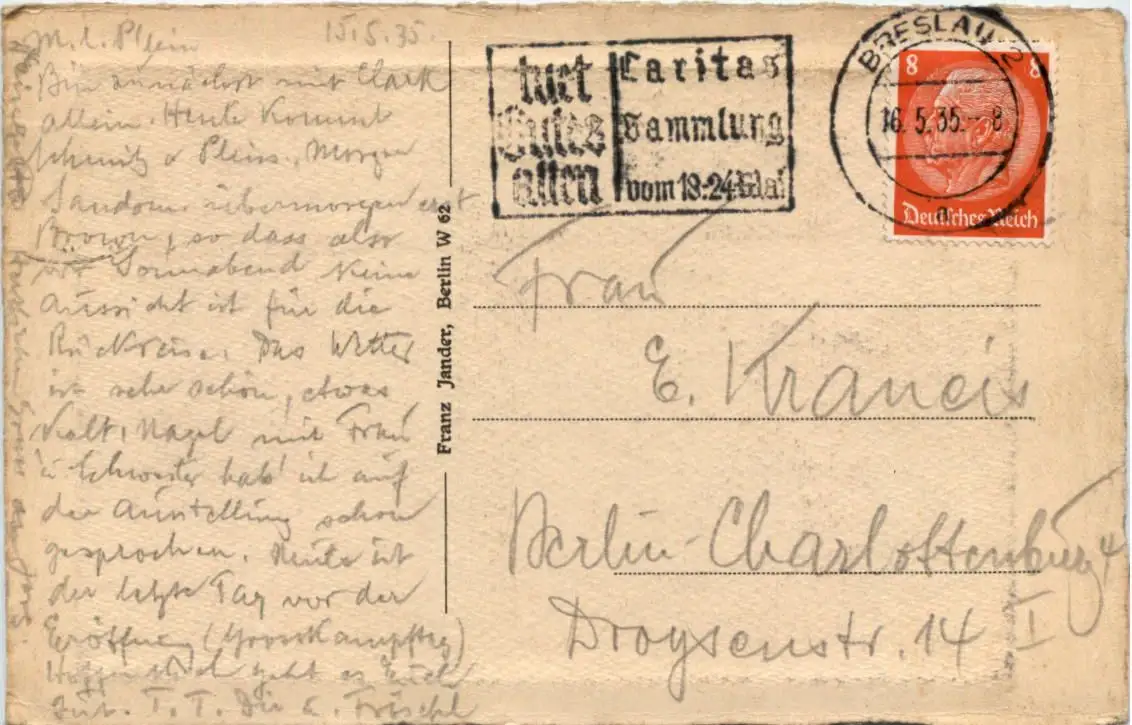 15.5.35.
Bin zunächst mit Clark
allein. Heute kommt
Morgen
übermorgen erst
Brown, so dass also
vor Sonnabend keine
Aussicht ist für die
Rückreise. Das Wetter
ist sehr schön, etwas
kalt. Nagel mit Frau
u Schwester hab' ich auf
der Ausstellung schon
gesprochen. Heute ist
der letzte Tag vor der
Eröffnung (Grosskampftag)
Hoffentlich geht es Euch
gut.
Franz Jander, Berlin W 62
tuet
Gutes
allen
Caritas
Sammlung
vom 18-24 Mai
BRESLAU 2
16.5.35.-8
8 8
Deutsches Reich
Frau
E. Francis
Berlin-Charlottenburg 4
Droysenstr. 14 I